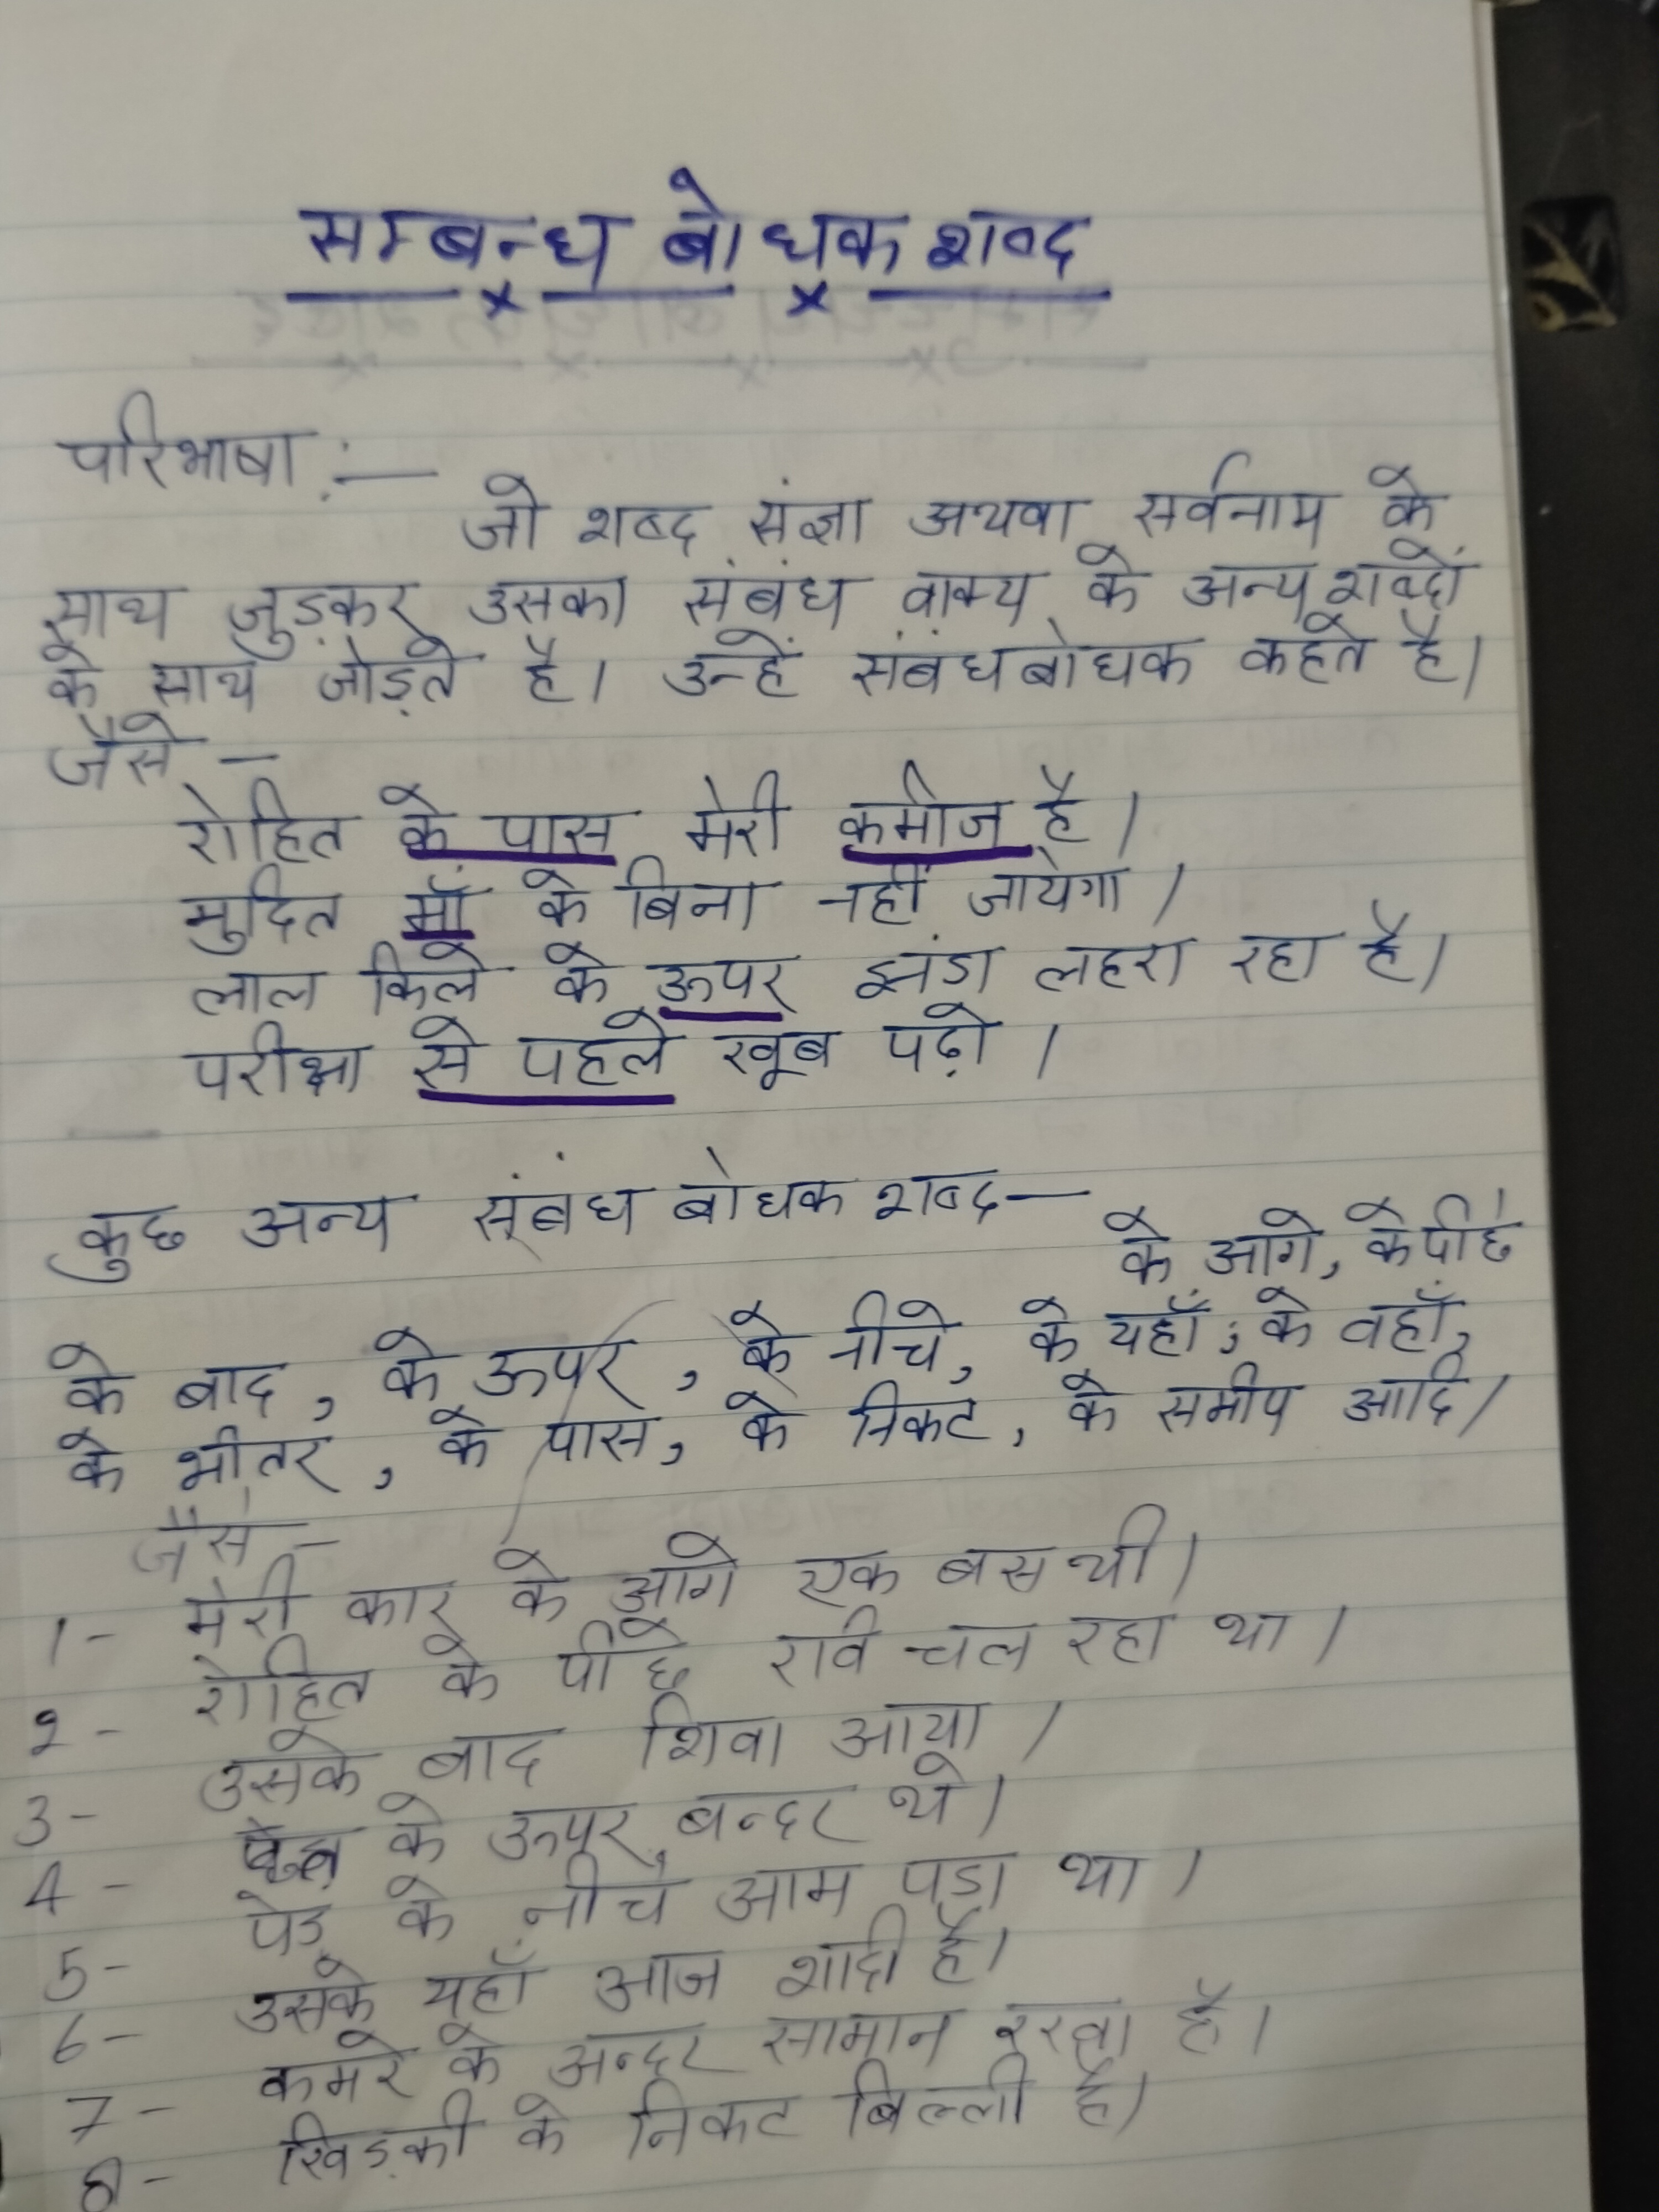 सम्बन्ध बोधक शब्द
परिभाषा :—
जो शब्द संज्ञा अथवा सर्वनाम के
साथ जुड़कर उसका संबंध वाक्य के अन्य शब्दों
के साथ जोड़ते है। उन्हें संबंधबोधक कहते है।
जैसे –
रोहित के पास मेरी कमीज है।
मुदित माँ के बिना नहीं जायेगा।
लाल किले के ऊपर झंडा लहरा रहा है।
परीक्षा से पहले खूब पढ़ो।
कुछ अन्य संबंध बोधक शब्द—
के आगे, के पीछे
के बाद, के ऊपर, के नीचे, के यहाँ, के वहाँ,
के भीतर, के पास, के निकट, के समीप आदि।
जैसे –
1- मेरी कार के आगे एक बस थी।
2- रोहित के पीछे रवि चल रहा था।
3- उसके बाद शिवा आया।
4- के ऊपर बन्दर थे।
5- पेड़ के नीचे आम पड़ा था।
6- उसके यहाँ आज शादी है।
7- कमरे के अन्दर सामान रखा है।
8- खिड़की के निकट बिल्ली है।